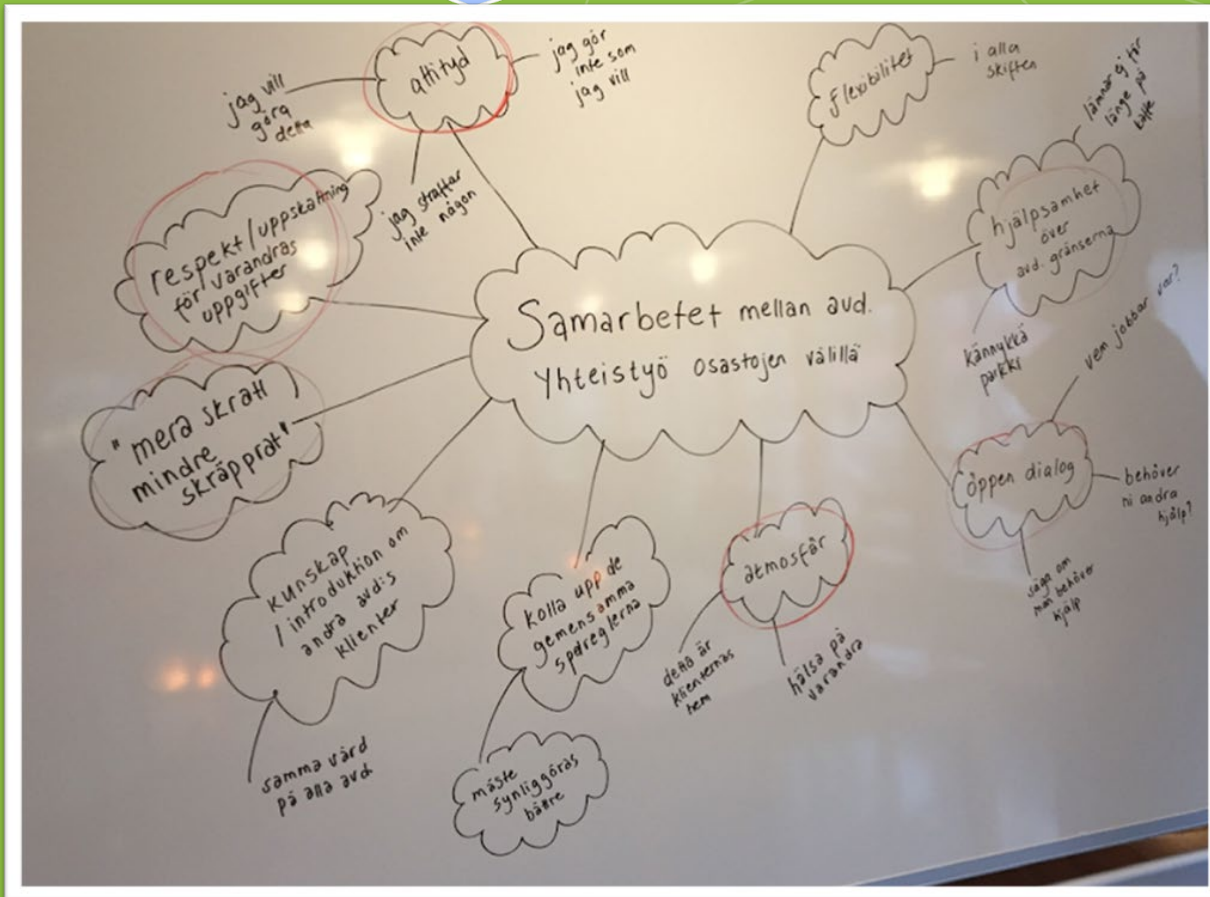 attityd
jag vill
göra
detta
jag gör
inte som
jag vill
jag straffar
inte någon
flexibilitet
i alla
skiften
hjälpsamhet
över
avd. gränserna
lämnar ej för
länge på
kaffe
kännykkä
parkki
respekt/uppskattning
för varandras
uppgifter
Samarbetet mellan avd.
Yhteistyö osastojen välillä
"mera skratt
mindre
skräpprat"
öppen dialog
vem jobbar var?
behöver
ni andra
hjälp?
säga om
man behöver
hjälp
kunskap
/ introduktion om
andra avd:s
klienter
samma vård
på alla avd.
kolla upp de
gemensamma
spelreglerna
måste
synliggöras
bättre
atmosfär
detta är
klienternas
hem
hälsa på
varandra